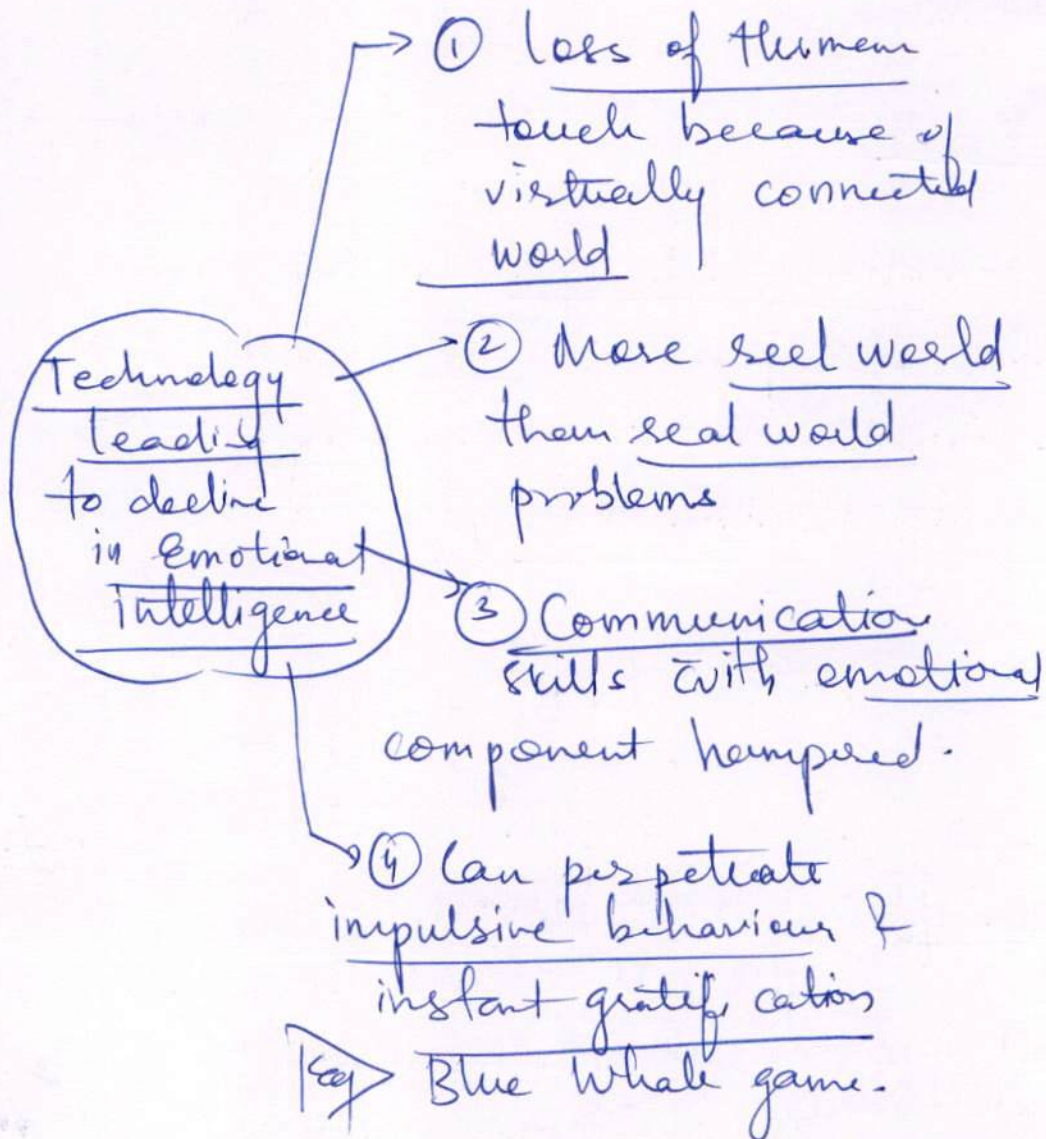 Technology
leading
to decline
in Emotional
intelligence
① Loss of Human
touch because of
virtually connected
world
② More reel world
than real world
problems
③ Communication
skills with emotional
component hampered.
④ Can perpetuate
impulsive behaviour &
instant gratification
Eg Blue Whale game.